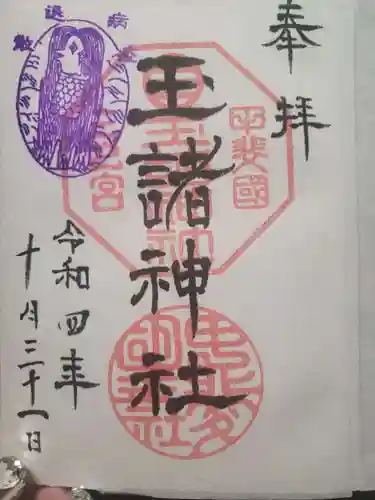 奉拜
玉諸神社
甲斐國
三宮
令和四年
十月三十一日
病気退散